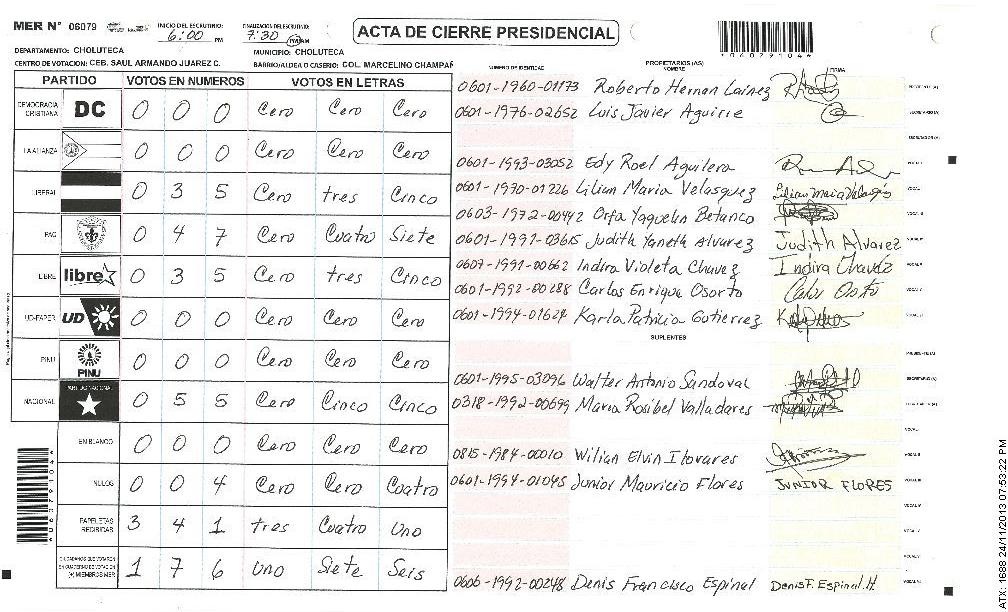 MER N° 06079 INICIO DEL ESCRUTINIO: 6:00 PM FINALIZACION DEL ESCRUTINIO: 7:30 PM AM
ACTA DE CIERRE PRESIDENCIAL
*060791044*
DEPARTAMENTO: CHOLUTECA MUNICIPIO: CHOLUTECA
CENTRO DE VOTACION: CEB. SAUL ARMANDO JUAREZ C. BARRIO/ALDEA O CASERIO: COL. MARCELINO CHAMPAÑ
PARTIDO VOTOS EN NUMEROS VOTOS EN LETRAS
DEMOCRACIA CRISTIANA DC 0 0 0 Cero Cero Cero
LA ALIANZA 0 0 0 Cero Cero Cero
LIBERAL 0 3 5 Cero tres Cinco
PAC 0 4 7 Cero Cuatro Siete
LIBRE libre 0 3 5 Cero tres Cinco
UD-FAPER UD 0 0 0 Cero Cero Cero
PINU PINU 0 0 0 Cero Cero Cero
NACIONAL PARTIDO NACIONAL 0 5 5 Cero Cinco Cinco
EN BLANCO 0 0 0 Cero Cero Cero
NULOS 0 0 4 Cero Cero Cuatro
PAPELETAS RECIBIDAS 3 4 1 tres Cuatro Uno
CIUDADANOS QUE VOTARON EN CUADERNO DE VOTACION (+) MIEMBROS MER 1 7 6 Uno Siete Seis
NUMERO DE IDENTIDAD PROPIETARIOS (AS) NOMBRE FIRMA
0601-1960-01173 Roberto Hernan Lainez PRESIDENTE (A)
0601-1976-02652 Luis Javier Aguirre SECRETARIO (A)
0601-1993-03052 Edy Roel Aguilera
0601-1970-01226 Lilian Maria Velasquez Lilian Maria Velasquez
0603-1972-00442 Orfa Yaquelin Betanco
0601-1991-03615 Judith Yaneth Alvarez Judith Alvarez
0607-1991-00662 Indira Violeta Chavez Indira Chavez
0601-1992-00288 Carlos Enrique Osorto
0601-1994-01624 Karla Patricia Gutierrez
SUPLENTES
PRESIDENTE (A)
0601-1995-03096 Walter Antonio Sandoval SECRETARIO (A)
0318-1992-00699 Maria Rosibel Valladares
0815-1984-00010 Wilian Elvin Tovares
0601-1994-01045 Junior Mauricio Flores JUNIOR FLORES
0606-1992-00248 Denis Francisco Espinal Denis F. Espinal. H.
*060791044*
ATX 1688 24/11/2013 07:53:22 PM